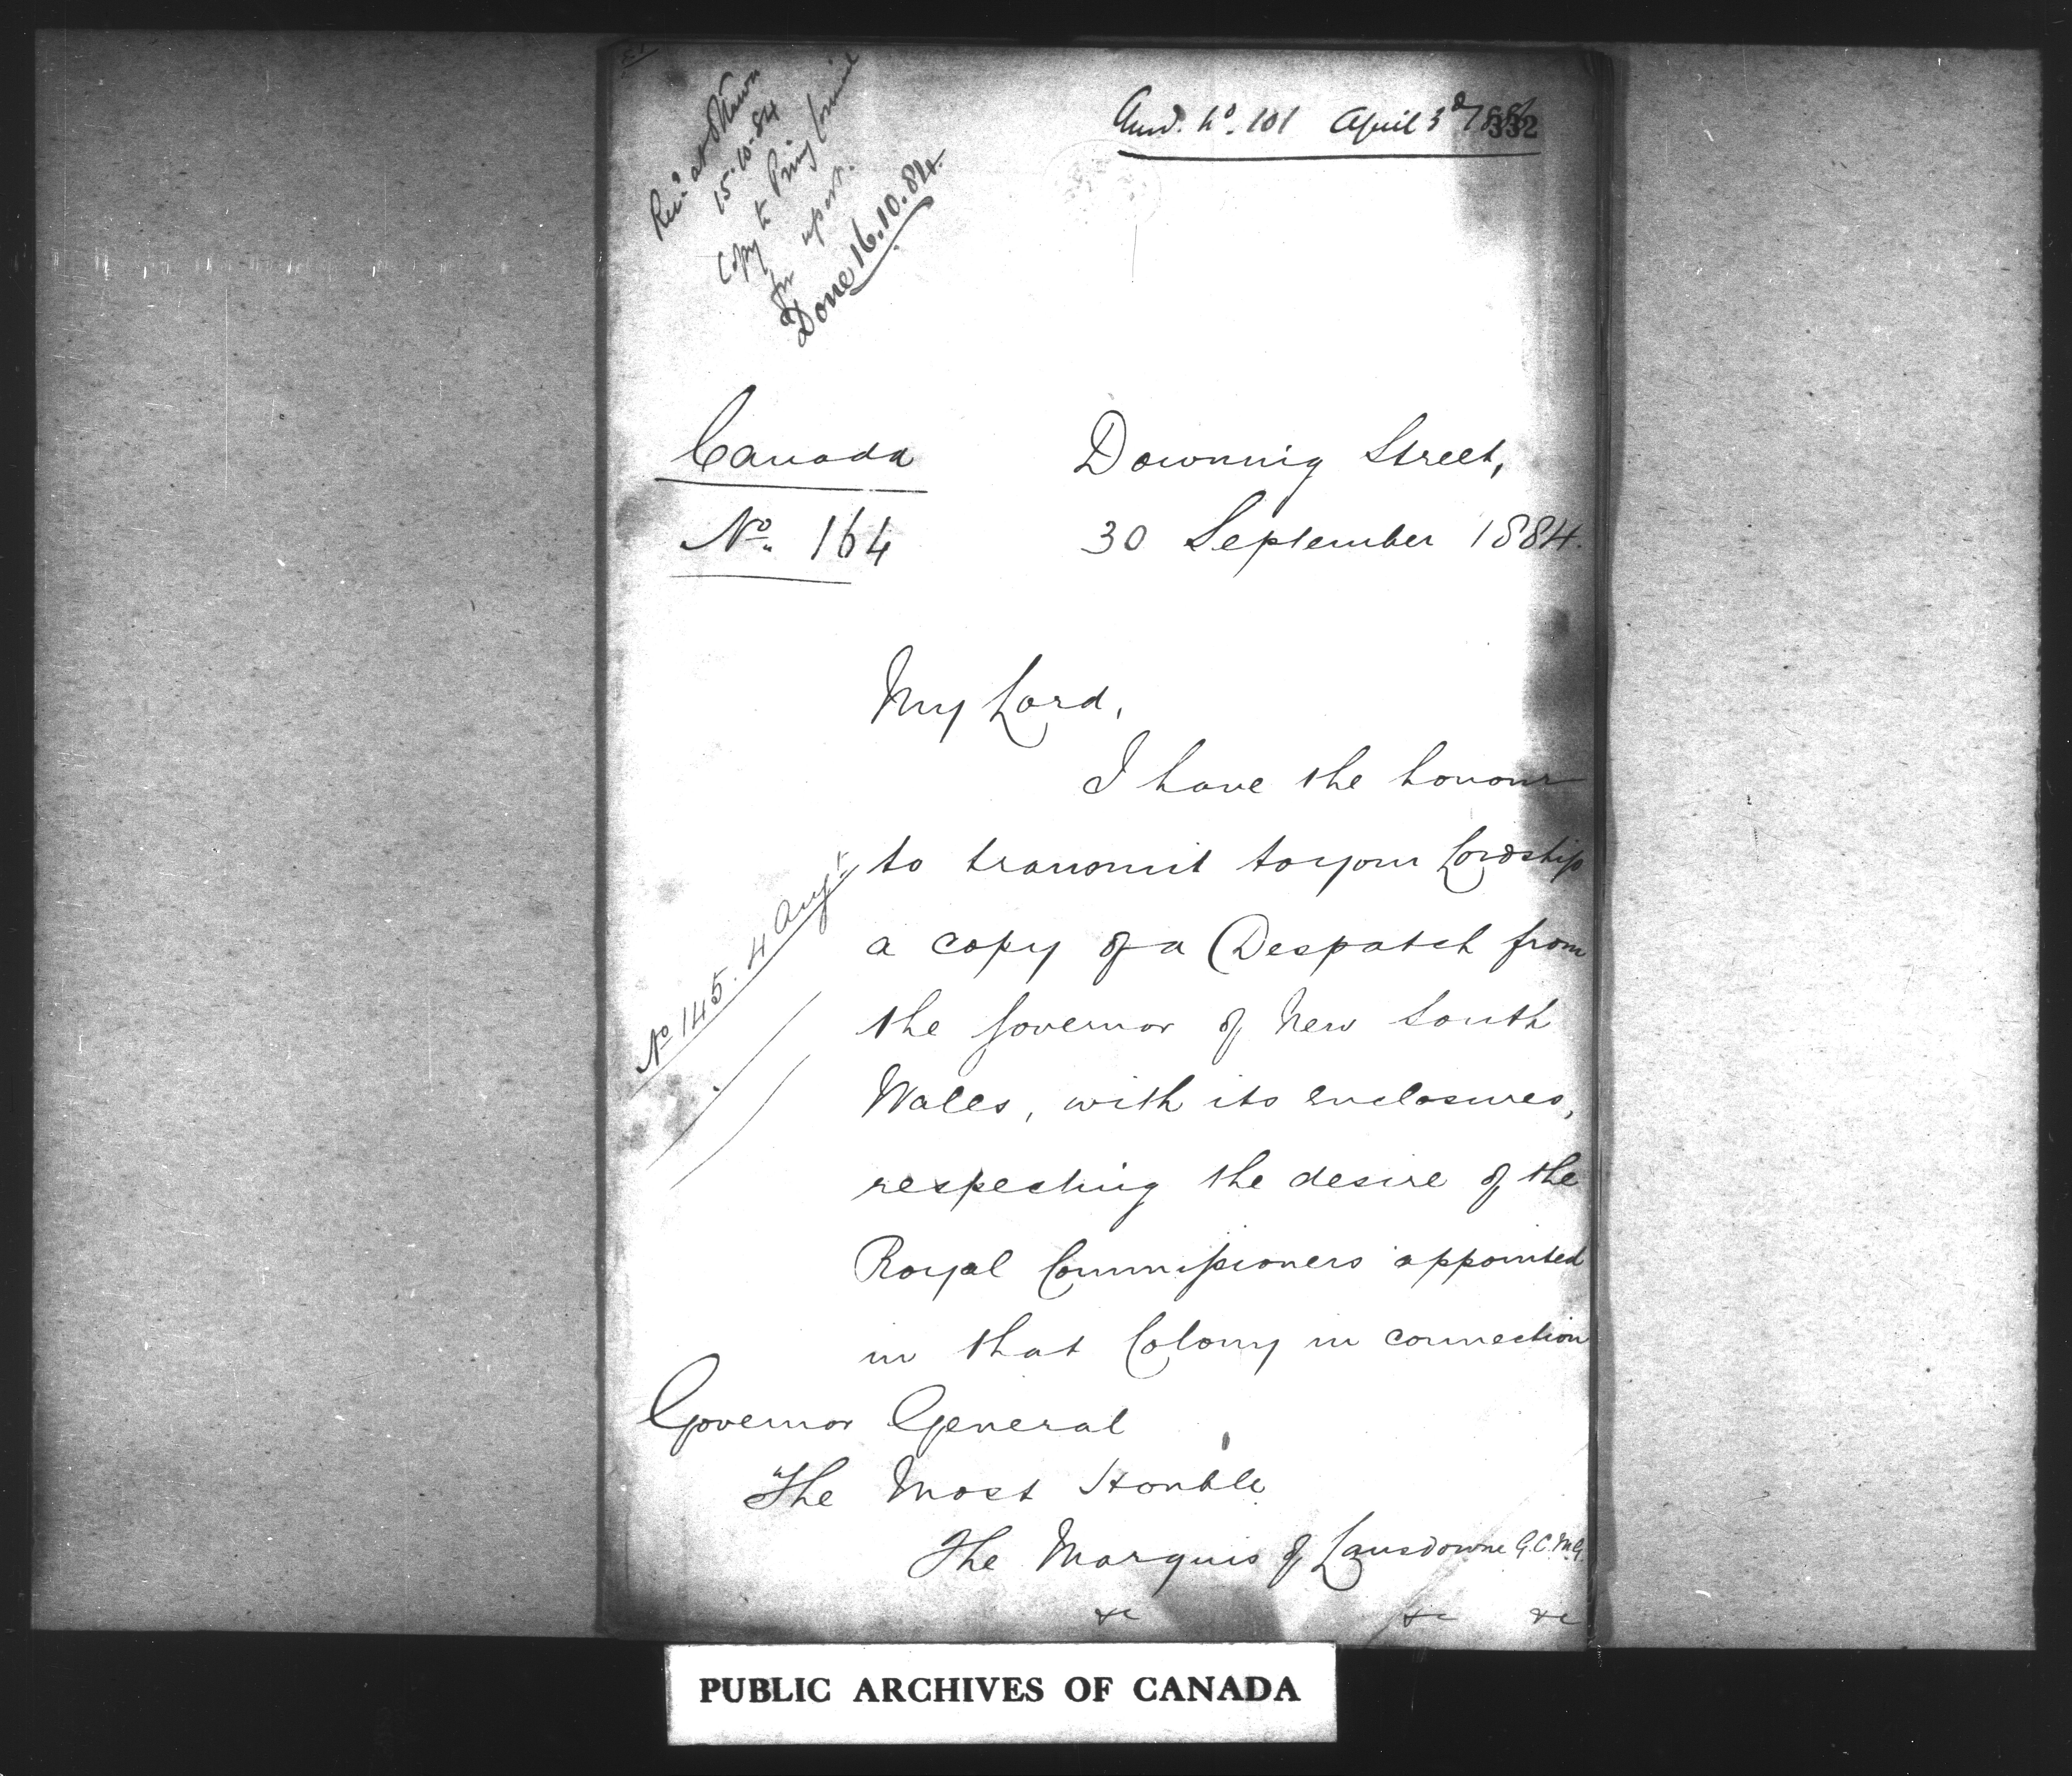 Recd at Ottawa
15-10-84
Copy to Privy Council
for report.
Done 16.10.84.
Ansd. No. 101 April 3d
332
Canada
No. 164
Downing Street,
30 September 1884.
My Lord,
I have the honour
to transmit to your Lordship
No 145. 4 Augt
a copy of a Despatch from
the Governor of New South
Wales, with its enclosures,
respecting the desire of the
Royal Commissioners appointed
in that Colony in connection
Governor General
The Most Honble
The Marquis of Lansdowne G.C.M.G.
&c &c &c
PUBLIC ARCHIVES OF CANADA